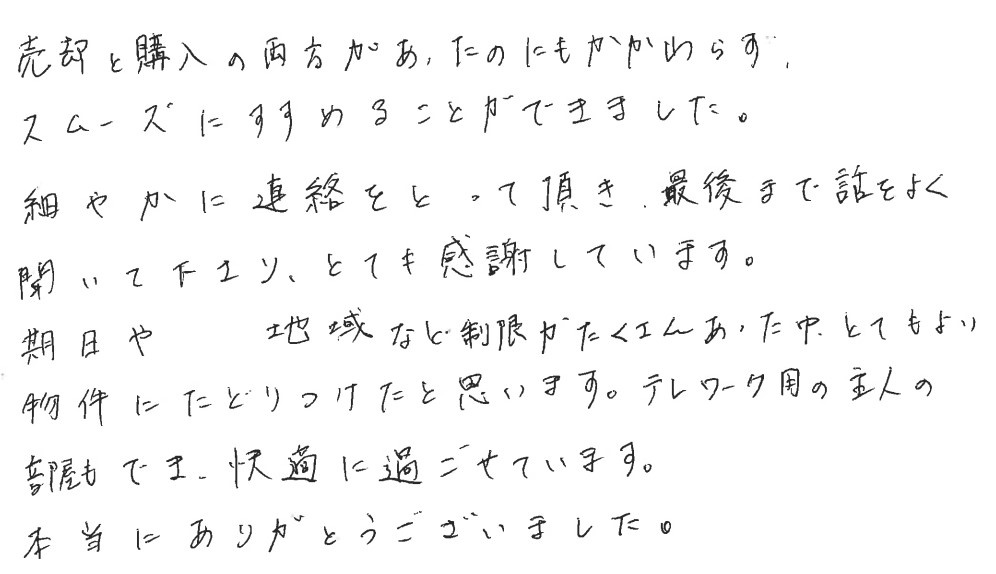 売却と購入の両方があったのにもかかわらず、
スムーズにすすめることができました。
細やかに連絡をとって頂き、最後まで話をよく
聞いて下さり、とても感謝しています。
期日や 地域など制限がたくさんあった中、とてもよい
物件にたどりつけたと思います。テレワーク用の主人の
部屋もでき、快適に過ごせています。
本当にありがとうございました。